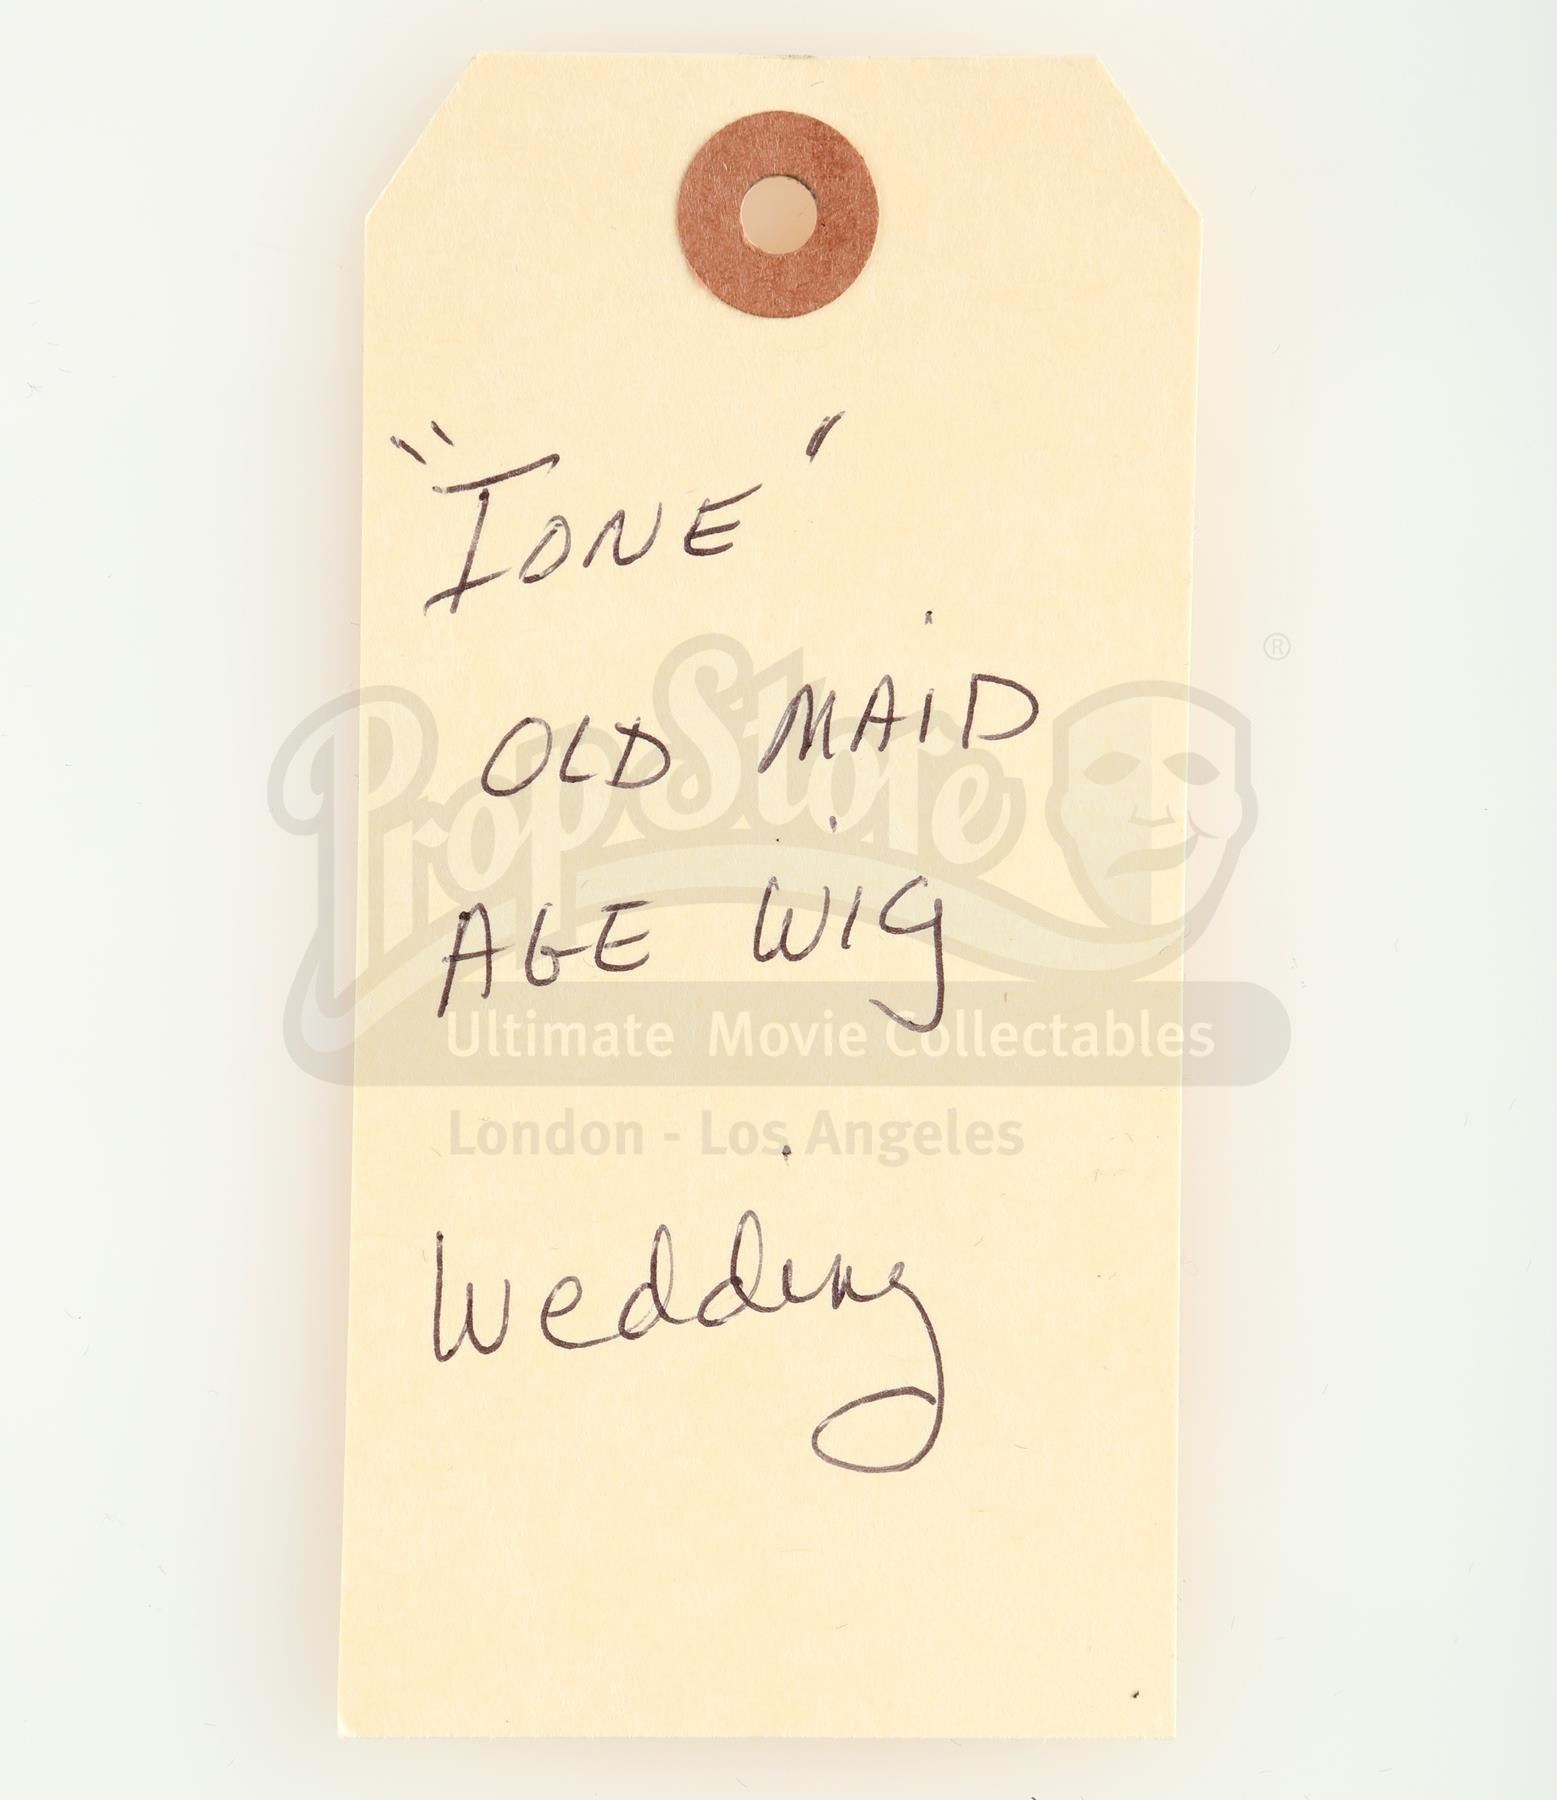 "IONE"
OLD MAID
AGE WIG
Wedding
PropStore
®
Ultimate Movie Collectables
London - Los Angeles